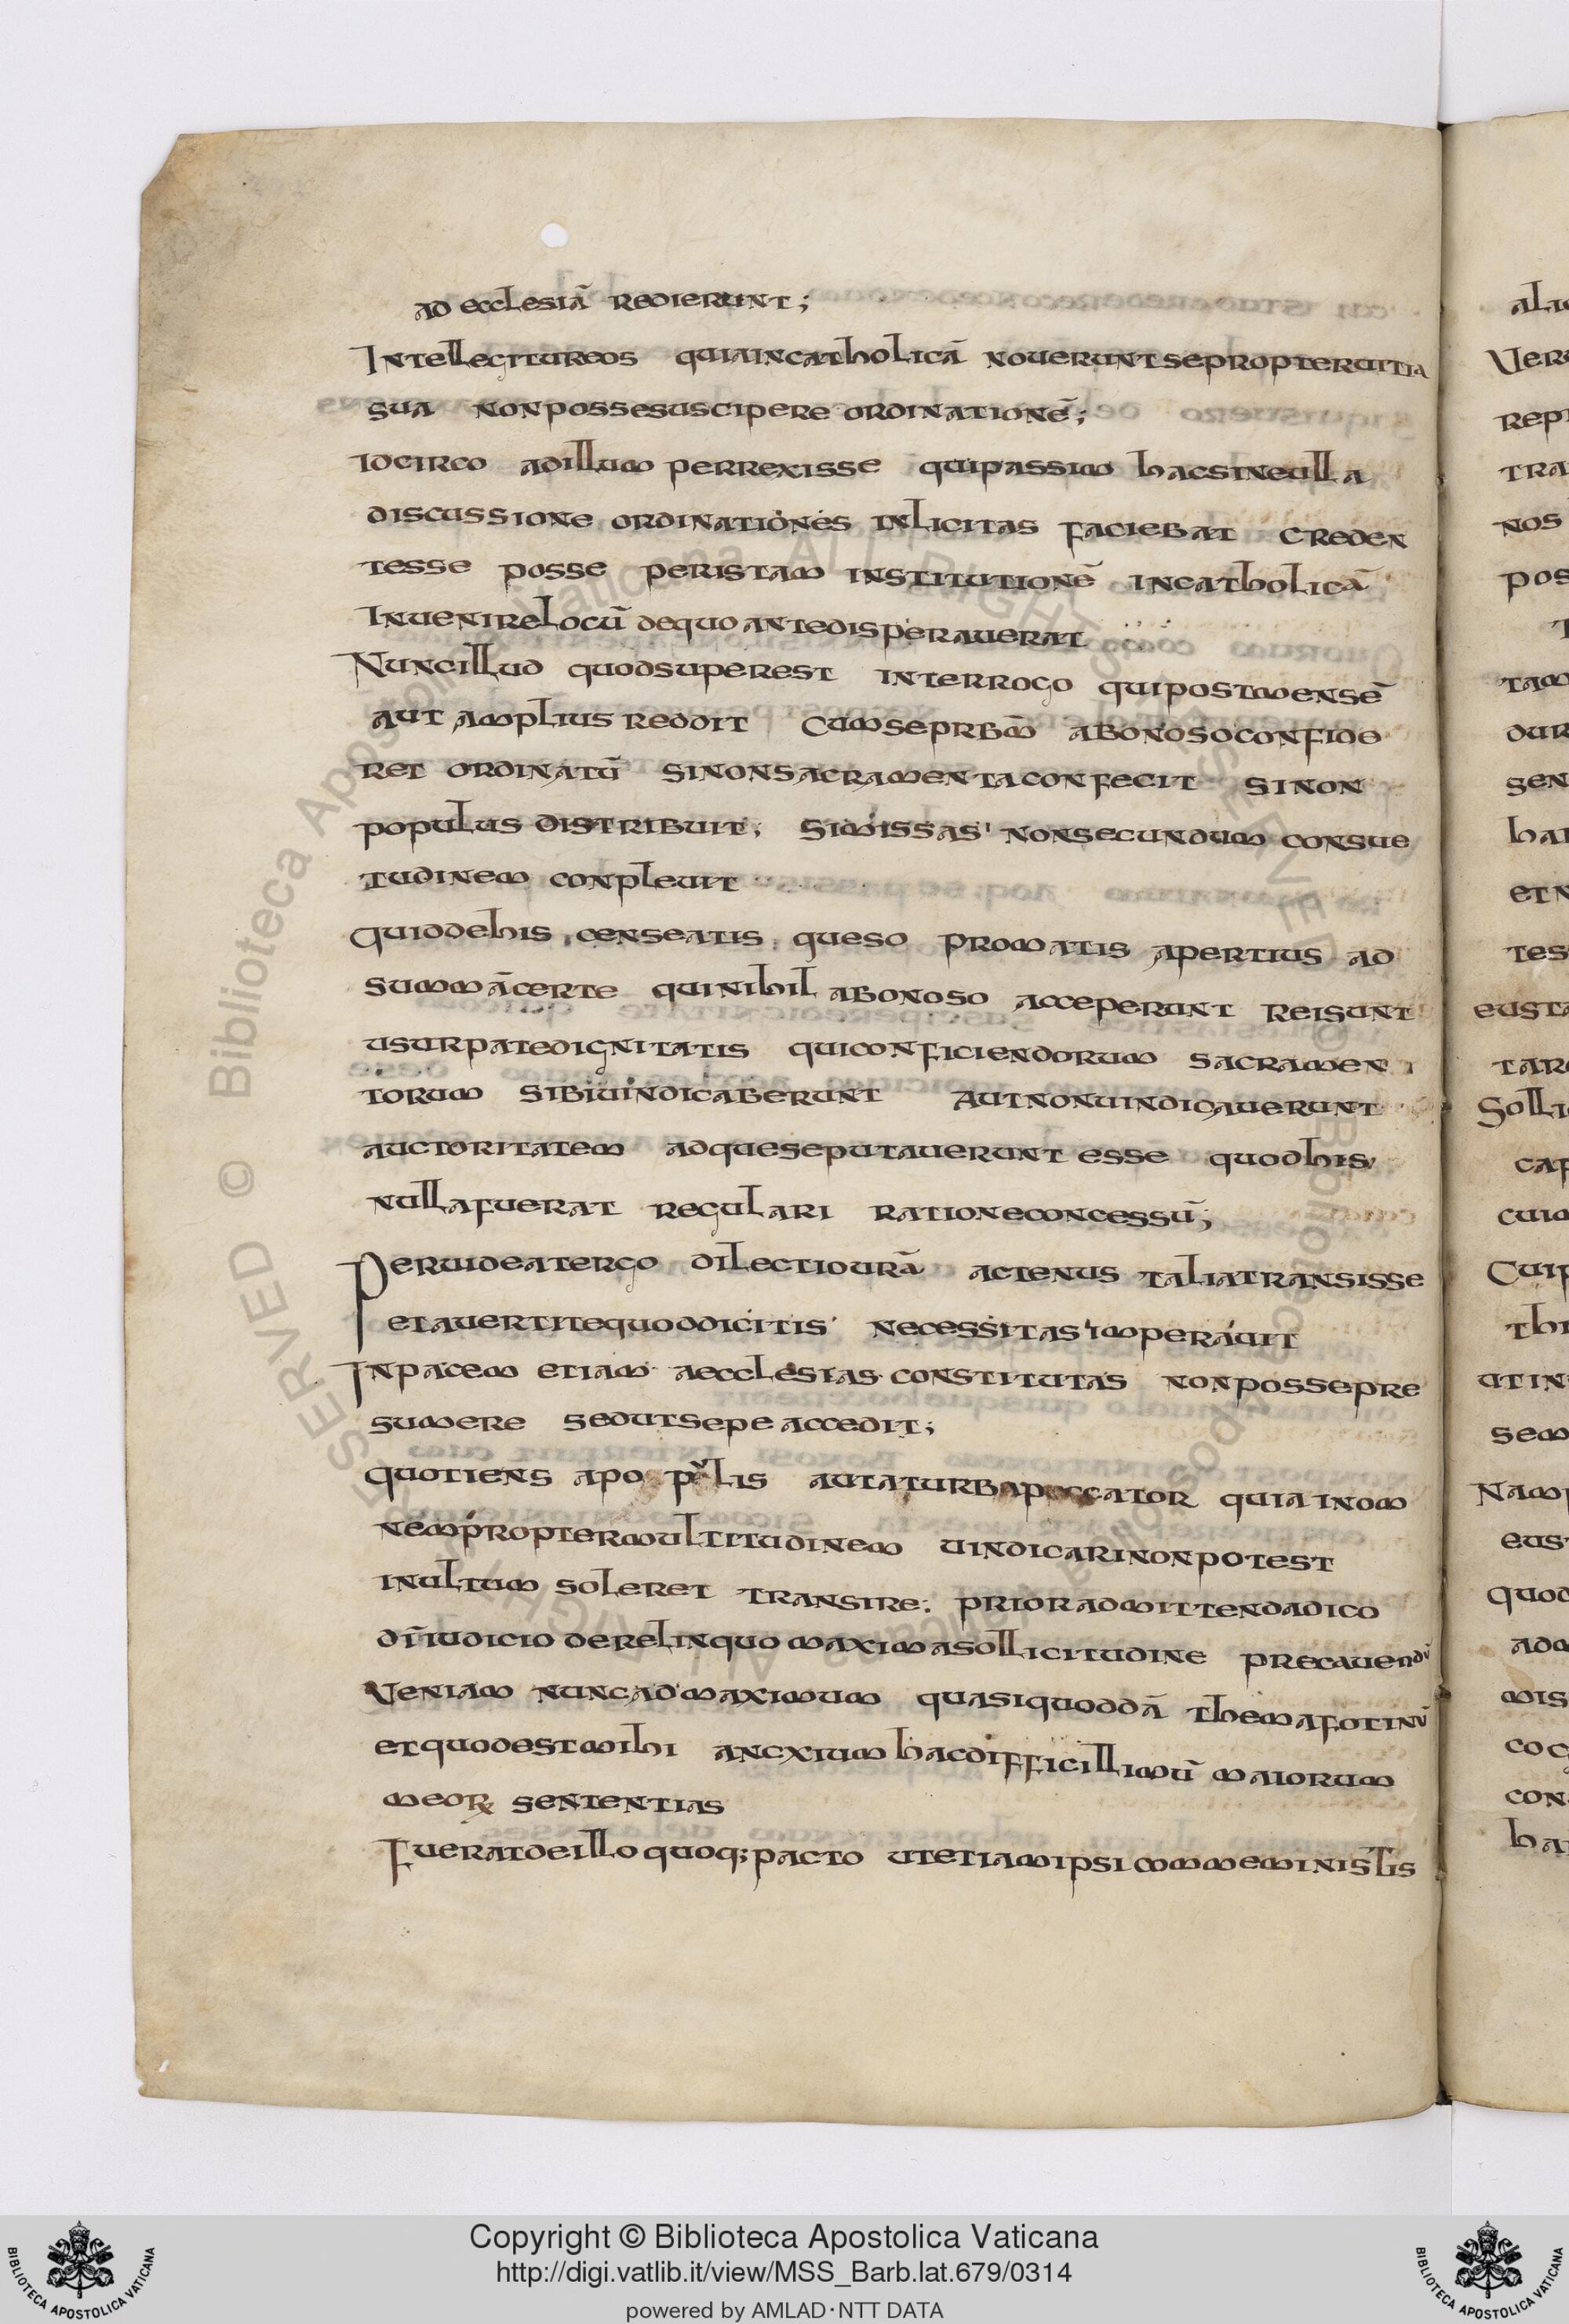 ad ecclesiā redierunt;
Intellegitureos quiaincatholicā noueruntsepropteruitia
sua nonpossesuscipere ordinationē;
idcirco adillum perrexisse quipassim hacsineulla
discussione ordinationes inlicitas faciebat creden
tesse posse peristam institutionē incatholicā
inuenirelocū dequo antedisperauerat
Nuncillud quodsuperest interrogo quipostmensē
aut amplius reddit cumseprbm̄ abonosoconfide
ret ordinatū sinonsacramentaconfecit sinon
populus distribuit; simissas nonsecundum consue
tudinem conpleuit
Quiddehis censeatis queso promatis apertius ad
summācerte quinihil abonoso acceperunt reisunt
usurpatedignitatis quiconficiendorum sacramen
torum sibiuindicaberunt autnonuindicauerunt
auctoritatem adqueseputauerunt esse quodhis
nullafuerat regulari rationeconcessū;
Peruideatergo dilectiourā actenus taliatransisse
etauertitequoddicitis necessitas imperauit
Inpacem etiam aecclesias constitutas nonpossepre
sumere sedutsepe accedit;
quotiens apo plis autaturba peccator quiainom
nemproptermultitudinem uindicarinonpotest
inultum soleret transire: prioradmittendadico
dīiudicio derelinquo maximasollicitudine precauendū
Ueniam nuncadmaximum quasiquoddā themafotinū
etquodestmihi ancxium hacdifficillimū maiorum
meorꝝ sententias
Fueratdeillo quoq;pacto utetiamipsi commeministis
Copyright © Biblioteca Apostolica Vaticana
http://digi.vatlib.it/view/MSS_Barb.lat.679/0314
powered by AMLAD·NTT DATA